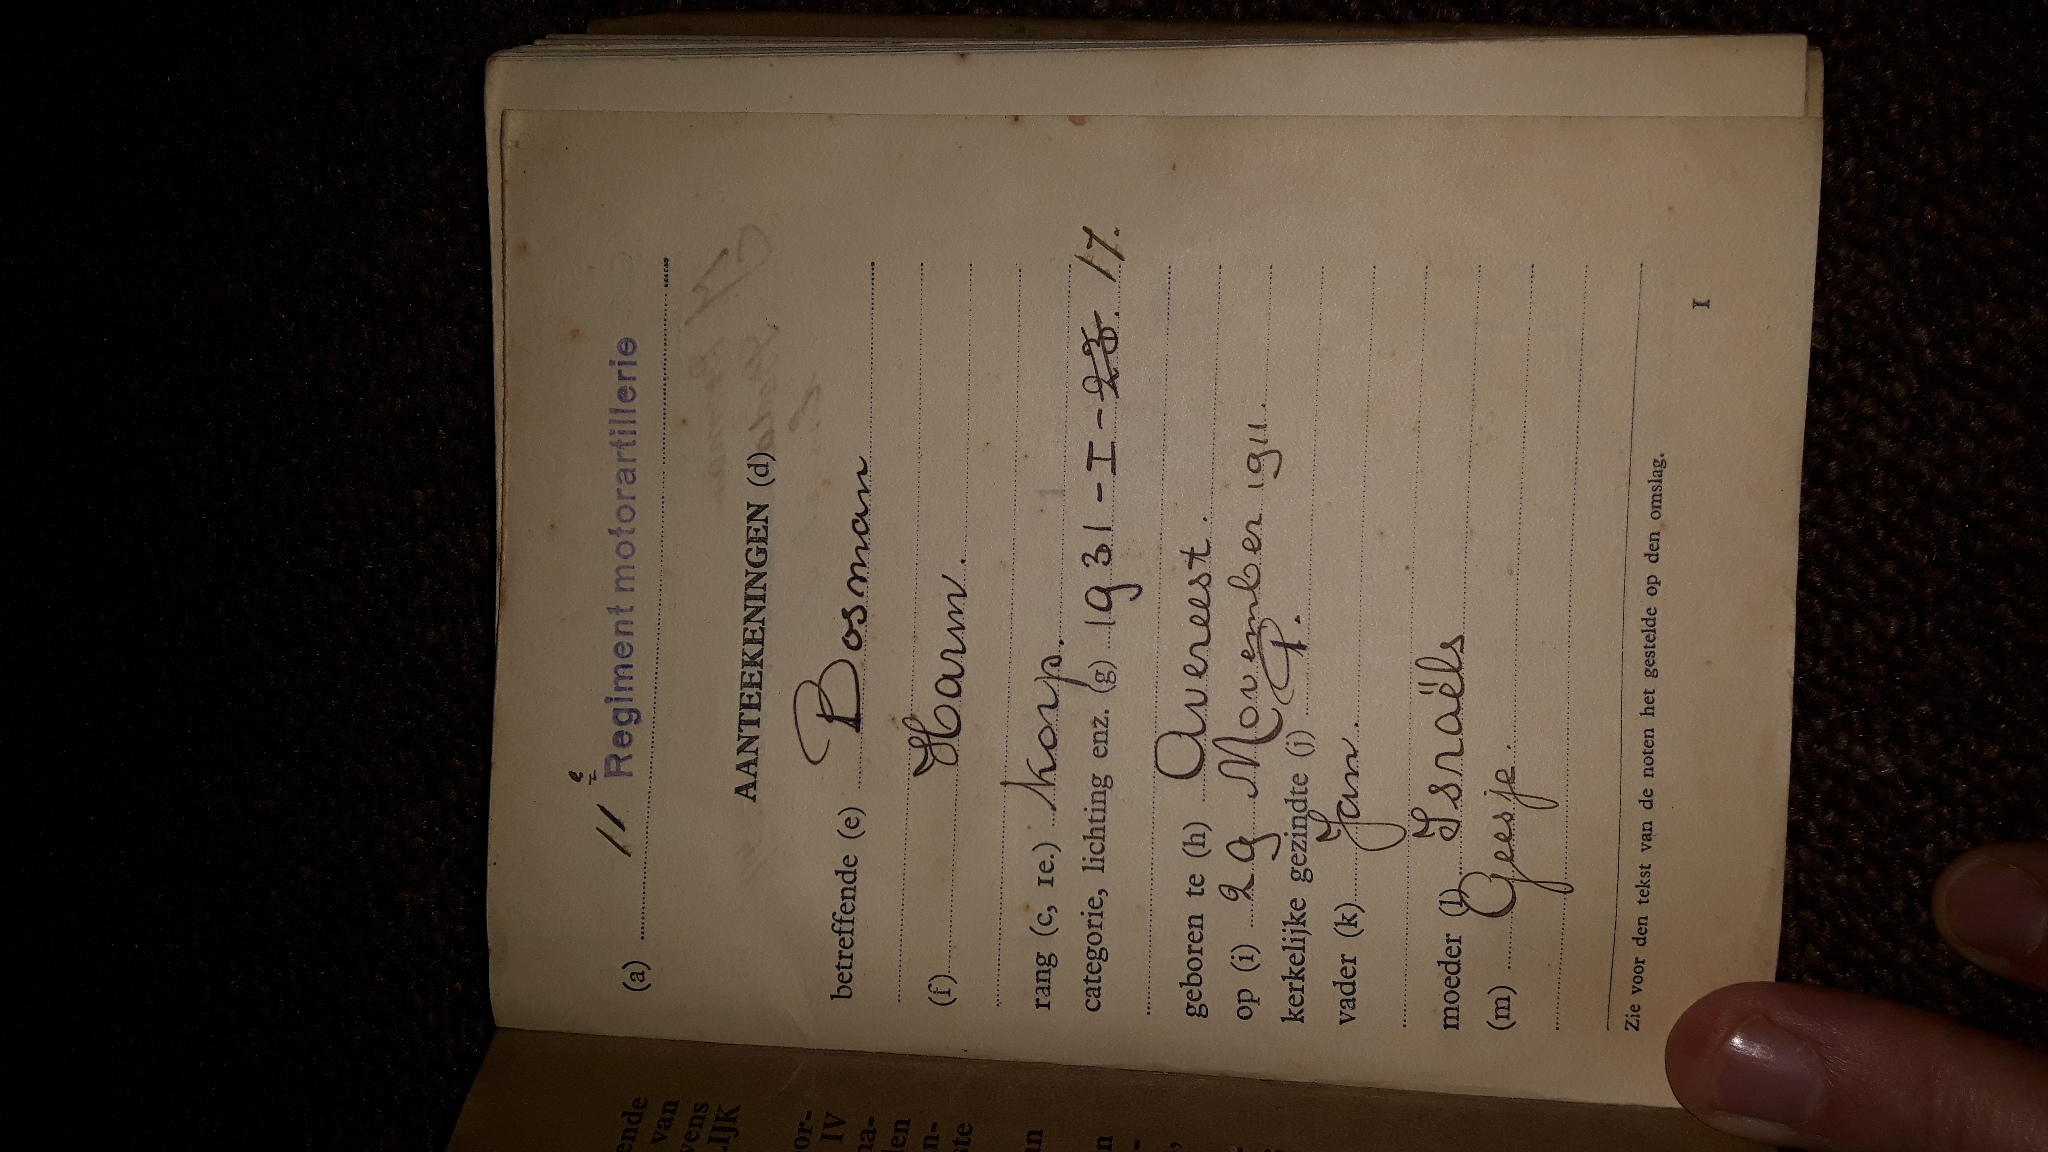 (a) 11e Regiment motorartillerie
AANTEEKENINGEN (d)
betreffende (e) Bosman
(f) Harm.
rang (c, 1e.) korp.
categorie, lichting enz. (g) 1931-I- 17.
geboren te (h) Avereest.
op (i) 29 November 1911.
kerkelijke gezindte (j) P.
vader (k) Jan.
moeder (l) Israëls
(m) Geesje.
Zie voor den tekst van de noten het gestelde op den omslag.
1
ende
van
vens
LIJK
or-
IV
na-
len
n-
ste